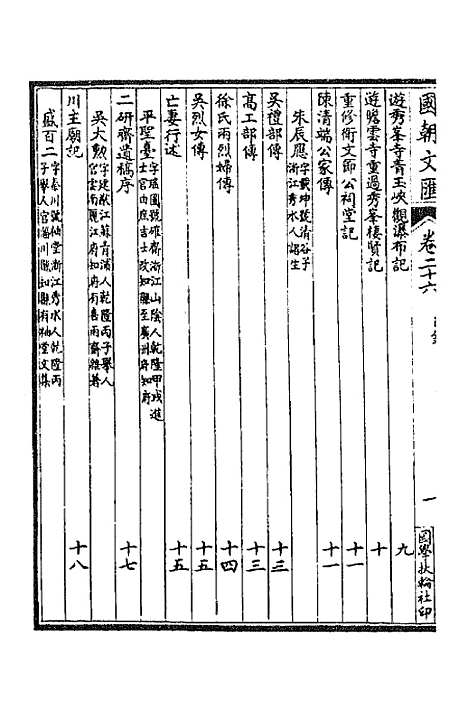 國朝文匯 卷二十六 目錄 一 國學扶輪社印
遊秀峯寺青玉峽觀瀑布記 九
遊瞻雲寺重過秀峯棲賢記 十
重修衛文節公祠堂記 十一
陳清端公家傳 十一
朱辰應 字載坤號清谷子浙江秀水人諸生
吳禮部傳 十三
高工部傳 十三
徐氏兩烈婦傳 十四
吳烈女傳 十五
亡妻行述 十五
平聖臺 字瑤圃號確齋浙江山陰人乾隆甲戌進士官由庶吉士改知縣至廣州府知府
二研齋遺稿序 十七
吳大勲 字建猷江蘇青浦人乾隆丙子舉人官雲南麗江府知府有喜雨齋雜著
川主廟記 十八
盛百二 字秦川號柚堂浙江秀水人乾隆丙子舉人官淄川縣知縣有柚堂文集